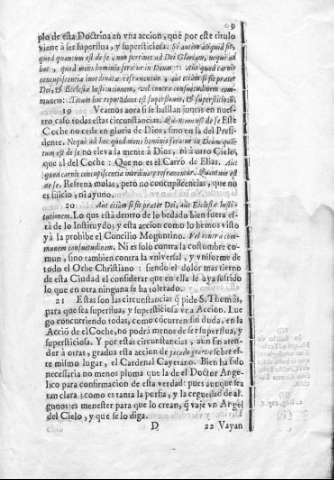 9
plo de esta Doctrina en vna accion, que por este titulo
viene à ser superflua, y supersticiosa. Si autem aliquid sit,
quod quantum est de se, non pertinet ad Dei Gloriam, neque ad
hoc, quod mens hominis feratur in Deum: Aut quod carnis
concupiscentiæ inordinatæ refrenentur, aut etiam si sit præter
Dei, & Ecclesiæ Institutionem, vel contra consuetudinem com-
munem: Totum hoc reputandum est superfluum, & superstitiosũ.
19 Veamos aora si se hallan juntas en nues-
tro caso todas estas circunstancias. Quantum est de se Este
Coche no cede en gloria de Dios, sino en la del Presi-
dente. Neque ad hoc quod mens hominis feratur in Deum quan-
tum est de se no eleva la mente à Dios, ni à otro Cielo,
que al del Coche: Que no es el Carro de Elias. Aut
quod carnis concupiscentiæ inordinatæ refrenentur. Quantum est
de se. Refrena mulas, pero no concupiscencias, que no
es silicio, ni ayuno.
20 Aut etiam si sit præter Dei, aut Ecclesiæ Insti-
tutionem. Lo que està dentro de lo bedado bien fuera es-
tà de lo Instituydo; y esta accion como lo hemos visto
yà la prohibe el Concilio Moguntino. Vel contra com-
munem consuetudinem. Ni es solo contra la costumbre co-
mun, sino tambien contra la vniversal, y vniforme de
todo el Orbe Christiano: siendo el dolor mas tierno
de esta Ciudad el considerar que en ella se aya sufrido
lo que en otra ninguna se ha tolerado.
21 Estas son las circunstancias q̃ pide S. Thomàs,
para que sea superflua, y supersticiosa vna Accion. Lue
go concurriendo todas, como cõcurren sin duda, en la
Acciõ de el Coche, no podrà menos de ser superflua, y
supersticiosa. Y por estas circunstancias, aun sin aten-
der à otras, gradua esta accion de pecado grave sobre es-
te mismo lugar, el Cardenal Cayetano. Bien ha sido
necessaria no menos pluma que la de el Doctor Ange-
lico para confirmacion de esta verdad: pues aunque sea
tan clara: como es tanta la persia, y la ceguedad de al-
gunos: es menester para que lo crean, q̃ vaje vn Angel
del Cielo, y que se lo diga.
D 22 Vayan